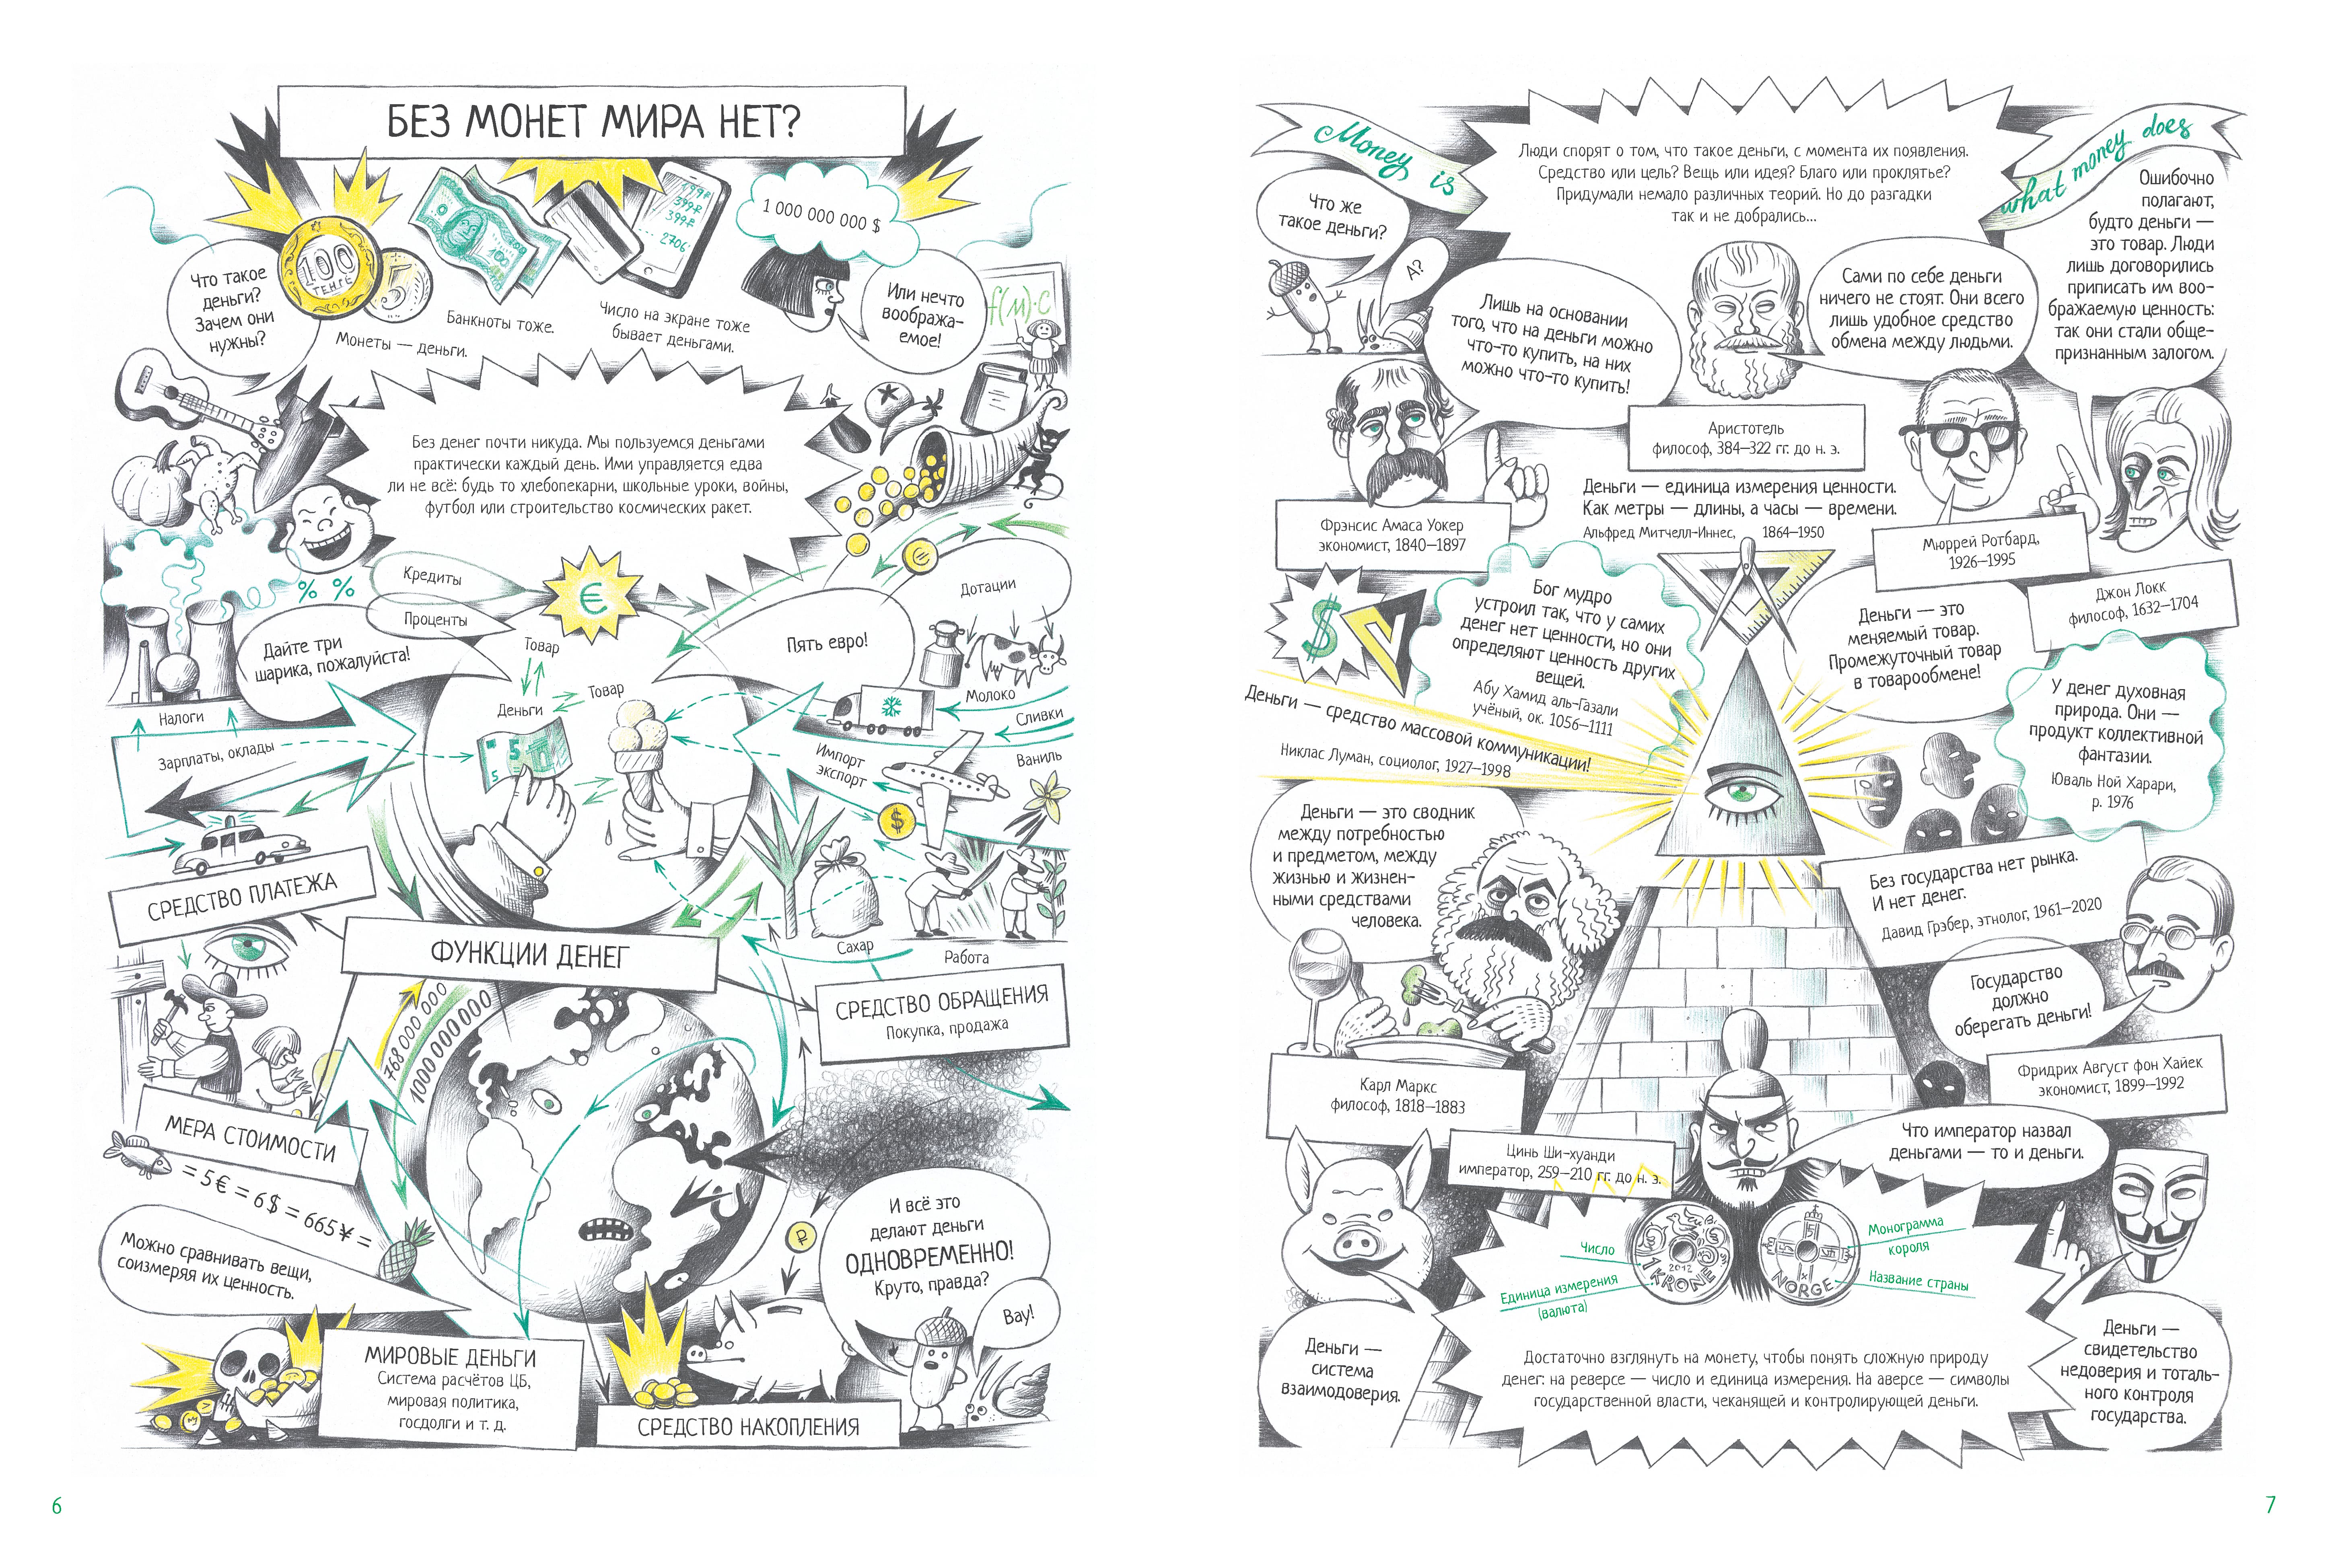 БЕЗ МОНЕТ МИРА НЕТ?
1 000 000 000 $
199₽
399₽
399₽
2706
Что такое
деньги?
Зачем они
нужны?
100
ТЕНГЕ
5
100
Монеты — деньги.
Банкноты тоже.
Число на экране тоже
бывает деньгами.
Или нечто
вообража-
емое!
f(м)·c
Без денег почти никуда. Мы пользуемся деньгами
практически каждый день. Ими управляется едва
ли не всё: будь то хлебопекарни, школьные уроки, войны,
футбол или строительство космических ракет.
% %
Кредиты
Проценты
€
€
Дотации
Дайте три
шарика, пожалуйста!
Пять евро!
Товар
Товар
Деньги
5
5
Молоко
Сливки
Налоги
Зарплаты, оклады
Импорт
экспорт
Ваниль
$
СРЕДСТВО ПЛАТЕЖА
Сахар
Работа
ФУНКЦИИ ДЕНЕГ
СРЕДСТВО ОБРАЩЕНИЯ
Покупка, продажа
768 000 000
1000 000 000
МЕРА СТОИМОСТИ
= 5€ = 6$ = 665¥ =
Можно сравнивать вещи,
соизмеряя их ценность.
₽
И всё это
делают деньги
ОДНОВРЕМЕННО!
Круто, правда?
Вау!
МИРОВЫЕ ДЕНЬГИ
Система расчётов ЦБ,
мировая политика,
госдолги и т. д.
СРЕДСТВО НАКОПЛЕНИЯ
6
Money is
what money does
Люди спорят о том, что такое деньги, с момента их появления.
Средство или цель? Вещь или идея? Благо или проклятье?
Придумали немало различных теорий. Но до разгадки
так и не добрались...
Что же
такое деньги?
А?
Лишь на основании
того, что на деньги можно
что-то купить, на них
можно что-то купить!
Фрэнсис Амаса Уокер
экономист, 1840–1897
Сами по себе деньги
ничего не стоят. Они всего
лишь удобное средство
обмена между людьми.
Аристотель
философ, 384–322 гг. до н. э.
Ошибочно
полагают,
будто деньги —
это товар. Люди
лишь договорились
приписать им воо-
бражаемую ценность:
так они стали обще-
признанным залогом.
Джон Локк
философ, 1632–1704
Деньги — единица измерения ценности.
Как метры — длины, а часы — времени.
Альфред Митчелл-Иннес, 1864–1950
Мюррей Ротбард,
1926–1995
Деньги — это
меняемый товар.
Промежуточный товар
в товарообмене!
$
Бог мудро
устроил так, что у самих
денег нет ценности, но они
определяют ценность других
вещей.
Абу Хамид аль-Газали
учёный, ок. 1056–1111
Деньги — средство массовой коммуникации!
Никлас Луман, социолог, 1927–1998
У денег духовная
природа. Они —
продукт коллективной
фантазии.
Юваль Ной Харари,
р. 1976
Деньги — это сводник
между потребностью
и предметом, между
жизнью и жизнен-
ными средствами
человека.
Карл Маркс
философ, 1818–1883
Без государства нет рынка.
И нет денег.
Давид Грэбер, этнолог, 1961–2020
Государство
должно
оберегать деньги!
Фридрих Август фон Хайек
экономист, 1899–1992
Цинь Ши-хуанди
император, 259–210 гг. до н. э.
Что император назвал
деньгами — то и деньги.
Число
Единица измерения
(валюта)
2012
1 KRONE
NORGE
Монограмма
короля
Название страны
Деньги —
система
взаимодоверия.
Достаточно взглянуть на монету, чтобы понять сложную природу
денег: на реверсе — число и единица измерения. На аверсе — символы
государственной власти, чеканящей и контролирующей деньги.
Деньги —
свидетельство
недоверия и тоталь-
ного контроля
государства.
7